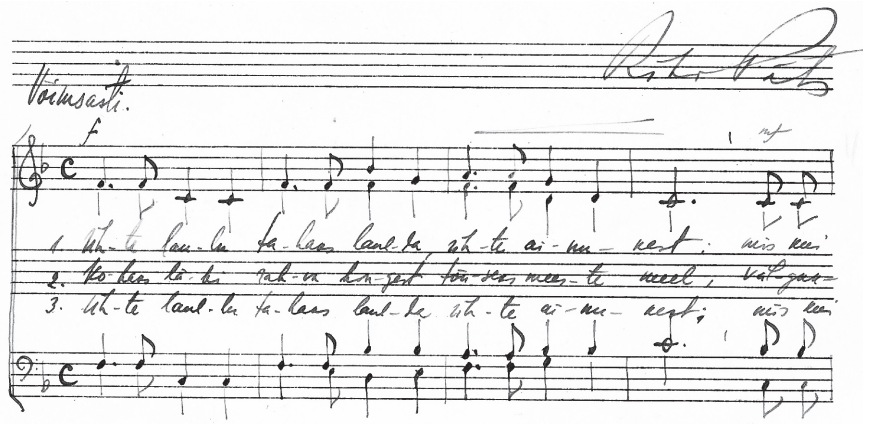 Riho Päts
Võimsasti.
f
mf
1. Üh-te lau-lu ta-haks laul-da, üh-te ai-nu-nest; mis kui
2. Ko-haks lä-bi rah-va hin-gest tõu-seks mees-te meel,
3. Üh-te laul-lu ta-haks laul-da üh-te ai-nu-nest; mis kui